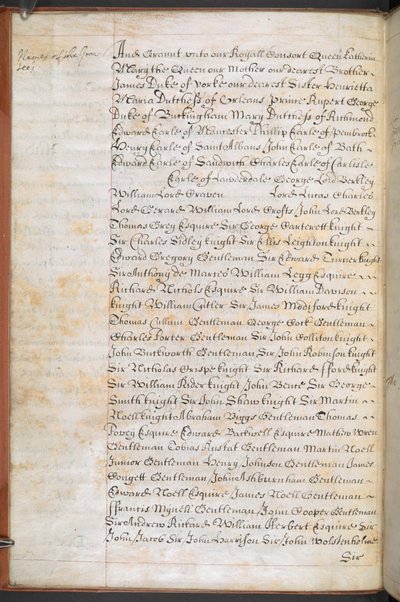 Names of the Gran
tees
And Graunt unto our Royall Consort Queen Katherin
Mary the Queen our Mother our dearest Brother
James Duke of Yorke our dearest Sister Henrietta
Maria Dutchess of Orleans Prince Rupert George
Duke of Buckingham Mary Dutchess of Richmond
Edward Earle of Manchester Phillip Earle of Pembrook
Henry Earle of Saint Albans John Earle of Bath
Edward Earle of Sandwich Charles Earle of Carlisle
Earle of Lauderdale George Lord Berkley
William Lord Craven Lord Lucas Charles
Lord Gerard William Lord Crofts John Lord Berkley
Thomas Grey Esquire Sir George Carterett knight
Sir Charles Sidley knight Sir Ellis Leighton knight
Edward Gregory Gentleman Sir Edward Turner knight
Sir Anthony de Marces William Legg Esquire
Richard Nichols Esquire Sir William Davison
knight William Cutler Sir James Modiford knight
Thomas Cullum Gentleman George Cock Gentleman
Charles Porter Gentleman Sir John Colliton knight
John Buckworth Gentleman Sir John Robinson knight
Sir Nicholas Crispe knight Sir Richard fford knight
Sir William Rider knight John Bence Sir George
Smith knight Sir John Shaw knight Sir Martin
Noell knight Abraham Biggs Gentleman Thomas
Povey Esquire Edward Backwell Esquire Mathew Wren
Gentleman Tobias Rustat Gentleman Martin Noell
Junior Gentleman Henry Johnson Gentleman James
Congett Gentleman John Ashburnham Gentleman
Edward Noell Esquire James Noell Gentleman
ffrancis Mynell Gentleman John Cooper Gentleman
Sir Andrew Rickard William Herbert Esquire Sir
John Jacob Sir John Harrison Sir John Wolstenholme
Sir